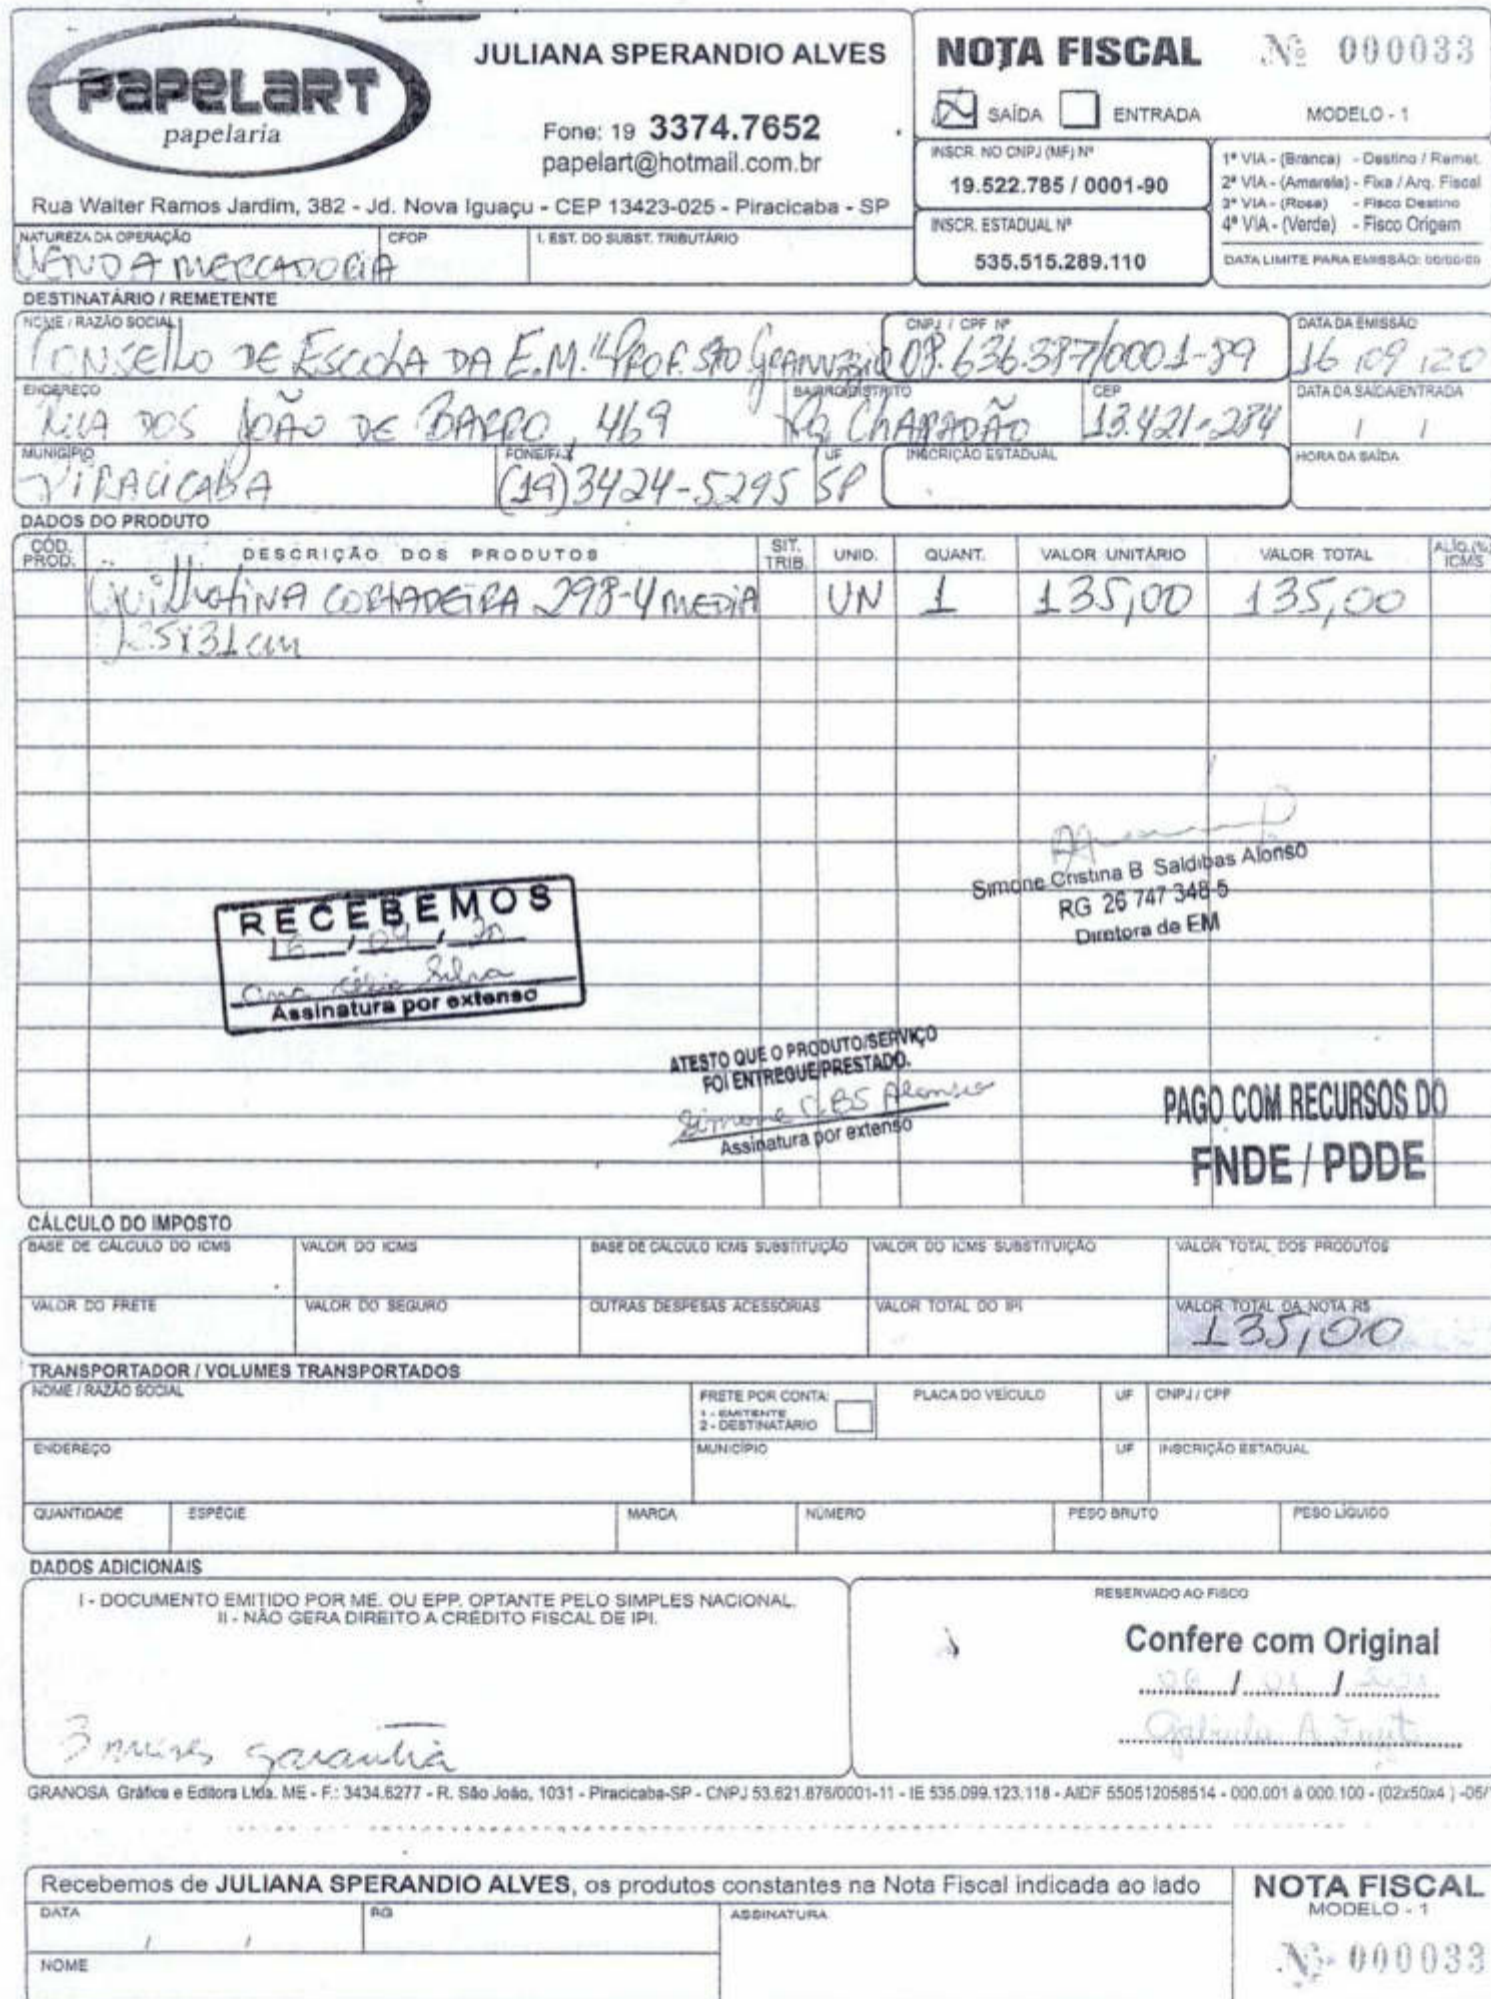 PAPELART
papelaria
JULIANA SPERANDIO ALVES
Fone: 19 3374.7652
papelart@hotmail.com.br
Rua Walter Ramos Jardim, 382 - Jd. Nova Iguaçu - CEP 13423-025 - Piracicaba - SP
NOTA FISCAL Nº 000033
SAÍDA ENTRADA MODELO - 1
INSCR. NO CNPJ (MF) Nº
19.522.785 / 0001-90
INSCR. ESTADUAL Nº
535.515.289.110
1ª VIA - (Branca) - Destino / Remet.
2ª VIA - (Amarela) - Fixa / Arq. Fiscal
3ª VIA - (Rosa) - Fisco Destino
4ª VIA - (Verde) - Fisco Origem
DATA LIMITE PARA EMISSÃO: 00/00/00
NATUREZA DA OPERAÇÃO CFOP I. EST. DO SUBST. TRIBUTÁRIO
VENDA MERCADORIA
DESTINATÁRIO / REMETENTE
NOME / RAZÃO SOCIAL CNPJ / CPF Nº DATA DA EMISSÃO
CONSELHO DE ESCOLA DA E.M. "PROF. 08.636.387/0001-89 16/09/20
ENDEREÇO BAIRRO/DISTRITO CEP DATA DA SAÍDA/ENTRADA
RUA DOS JOÃO DE BARRO, 469 CHAPADÃO 13.421-284 / /
MUNICÍPIO FONE/FAX UF INSCRIÇÃO ESTADUAL HORA DA SAÍDA
PIRACICABA (19)3424-5295 SP
DADOS DO PRODUTO
CÓD. PROD. DESCRIÇÃO DOS PRODUTOS SIT. TRIB. UNID. QUANT. VALOR UNITÁRIO VALOR TOTAL ALÍQ.(%) ICMS
Guilhotina CORTADEIRA 298-4 MEDIA UN 1 135,00 135,00
31cm
Simone Cristina B Saldibas Alonso
RG 26 747 348-5
Diretora de EM
RECEBEMOS
16 / 09 / 20
Ana Silva
Assinatura por extenso
ATESTO QUE O PRODUTO/SERVIÇO
FOI ENTREGUE/PRESTADO.
Simone C. BS Alonso
Assinatura por extenso
PAGO COM RECURSOS DO
FNDE / PDDE
CÁLCULO DO IMPOSTO
BASE DE CÁLCULO DO ICMS VALOR DO ICMS BASE DE CÁLCULO ICMS SUBSTITUIÇÃO VALOR DO ICMS SUBSTITUIÇÃO VALOR TOTAL DOS PRODUTOS
VALOR DO FRETE VALOR DO SEGURO OUTRAS DESPESAS ACESSÓRIAS VALOR TOTAL DO IPI VALOR TOTAL DA NOTA R$
135,00
TRANSPORTADOR / VOLUMES TRANSPORTADOS
NOME / RAZÃO SOCIAL FRETE POR CONTA: PLACA DO VEÍCULO UF CNPJ / CPF
1 - EMITENTE
2 - DESTINATÁRIO
ENDEREÇO MUNICÍPIO UF INSCRIÇÃO ESTADUAL
QUANTIDADE ESPÉCIE MARCA NÚMERO PESO BRUTO PESO LÍQUIDO
DADOS ADICIONAIS
I - DOCUMENTO EMITIDO POR ME. OU EPP. OPTANTE PELO SIMPLES NACIONAL.
II - NÃO GERA DIREITO A CRÉDITO FISCAL DE IPI.
3 meses garantia
RESERVADO AO FISCO
Confere com Original
GRANOSA Gráfica e Editora Ltda. ME - F.: 3434.6277 - R. São João, 1031 - Piracicaba-SP - CNPJ 53.621.876/0001-11 - IE 535.099.123.118 - AIDF 550512058514 - 000.001 à 000.100 - (02x50x4 ) -05/
Recebemos de JULIANA SPERANDIO ALVES, os produtos constantes na Nota Fiscal indicada ao lado
DATA RG ASSINATURA
/ /
NOME
NOTA FISCAL
MODELO - 1
Nº 000033